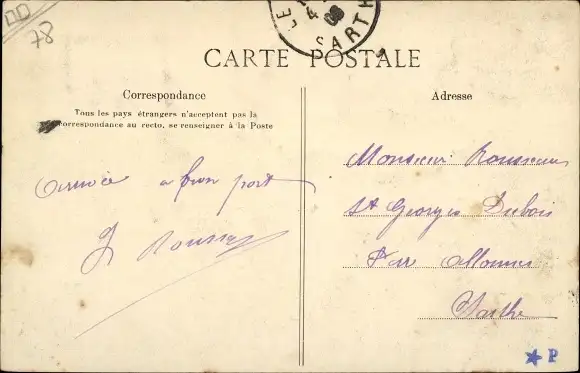 78
LE
SARTH
CARTE POSTALE
Correspondance
Tous les pays étrangers n'acceptent pas la
correspondance au recto, se renseigner à la Poste
Adresse
arrivée a bon port
Monsieur Rousseau
St Georges Dubois
Par Allonnes
Sarthe
P